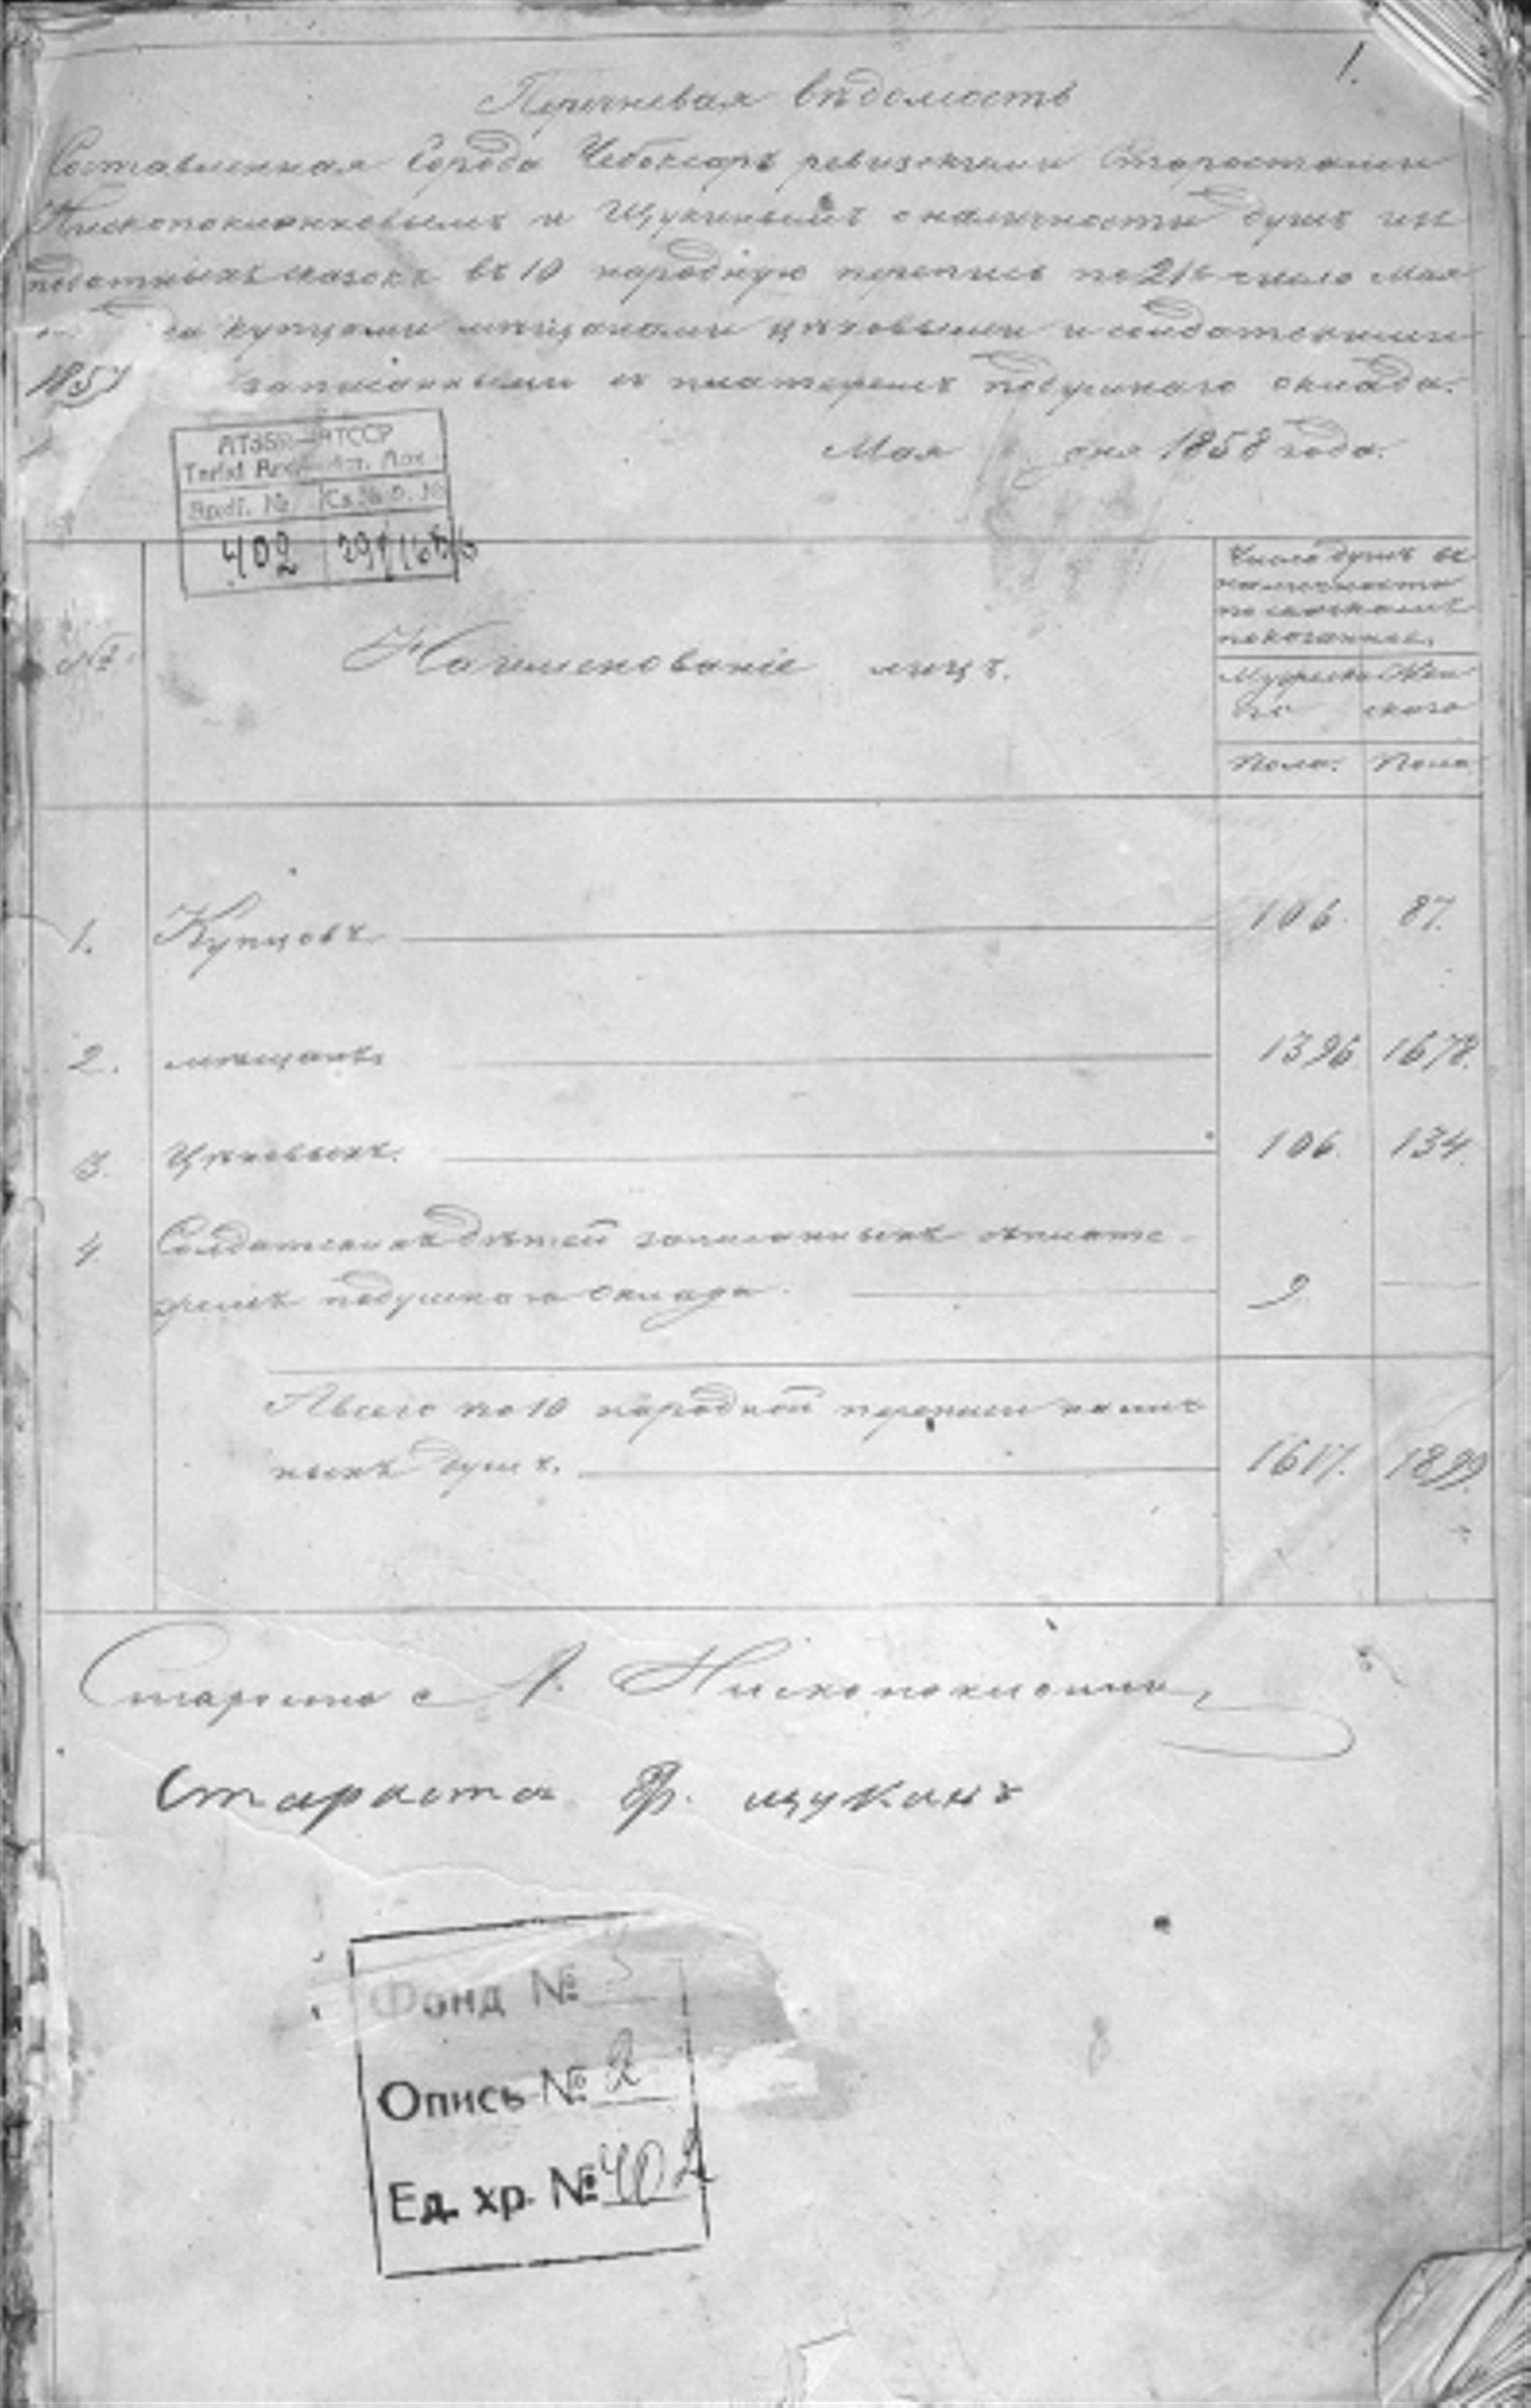 1.
Перечневая вѣдомость
Составленная Города Чебоксаръ ревизскими Старостами
и Щукинымъ о наличности душъ
сказокъ въ 10 народную перепись по 21е число Мая
купцами мѣщанами цѣховыми и солдатскими
1857 записанными съ платежемъ подушнаго оклада.
Мая дня 1858 года.
АТССР
402 291
№
Наименованіе лицъ.
Число душъ въ
наличности
по сказкамъ
показанное.
Мужска Жен
го скаго
Пола. Пола
1. Купцовъ 106. 87.
2. мѣщанъ 1396. 1678.
3. Цѣховыхъ. 106. 134.
4. Солдатскихъ дѣтей записанныхъ съплате-
жемъ подушнаго оклада. 9 —
Авсего по 10 народной переписи налич
ныхъ душъ. 1617. 1899.
Староста А.
Стараста Ф. щукинъ
Фонд №
Опись № 2
Ед. хр. № 402